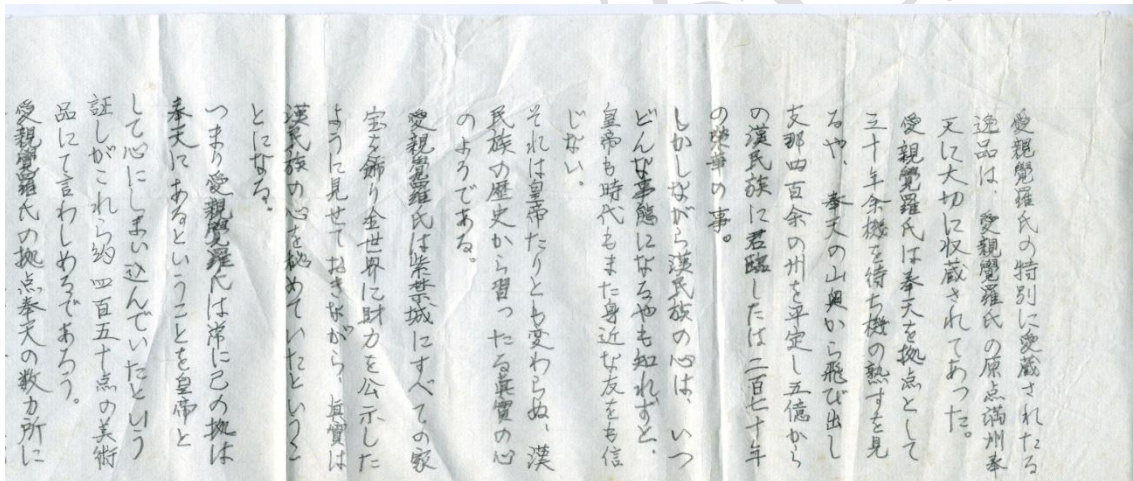 愛親覺羅氏の特別に愛蔵されたる
逸品は、愛親覺羅氏の原点満州奉
天に大切に収蔵されてあった。
愛親覺羅氏は奉天を拠点として
三十年余機を待ち機の熟すを見
るや、奉天の山奥から飛び出し
支那四百余の州を平定し五億から
の漢民族に君臨したは二百七十年
の栄華の事。
しかしながら漢民族の心は、いつ
どんな事態になるやも知れずと、
皇帝も時代もまた身近な友をも信
じない。
それは皇帝たりとも変わらぬ、漢
民族の歴史から習ったる真實の心
のようである。
愛親覺羅氏は紫禁城にすべての家
宝を飾り全世界に財力を公示した
ように見せておきながら、真實は
漢民族の心を秘めていたというこ
とになる。
つまり愛親覺羅氏は常に己の拠は
奉天にあるということを皇帝と
して心にしまい込んでいたという
証しがこれら約四百五十点の美術
品にて言わしめるであろう。
愛親覺羅氏の拠点奉天の数カ所に